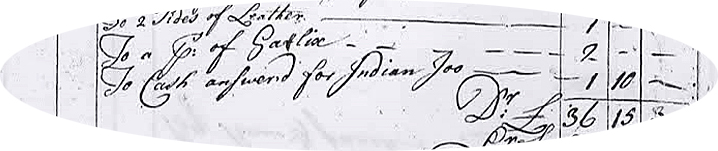 To 2 Sides of Leather 1
To a Ps: of Garlix 2
To Cash answerd for Indian Joo 1 10
Dr. £ 36 15 3